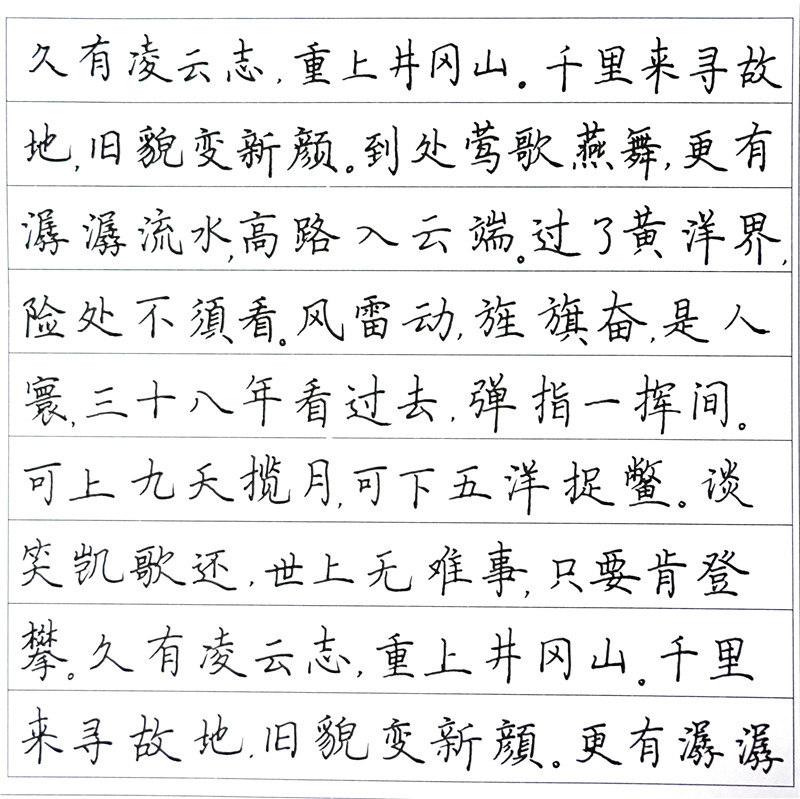 久有凌云志,重上井冈山。千里来寻故
地,旧貌变新颜。到处莺歌燕舞,更有
潺潺流水,高路入云端。过了黄洋界,
险处不須看。风雷动,旌旗奋,是人
寰,三十八年看过去,弹指一挥间。
可上九天揽月,可下五洋捉鳖。谈
笑凯歌还,世上无难事,只要肯登
攀。久有凌云志,重上井冈山。千里
来寻故地,旧貌变新颜。更有潺潺